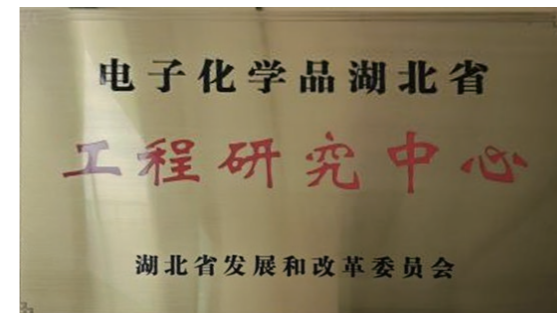 电子化学品湖北省
工程研究中心
湖北省发展和改革委员会